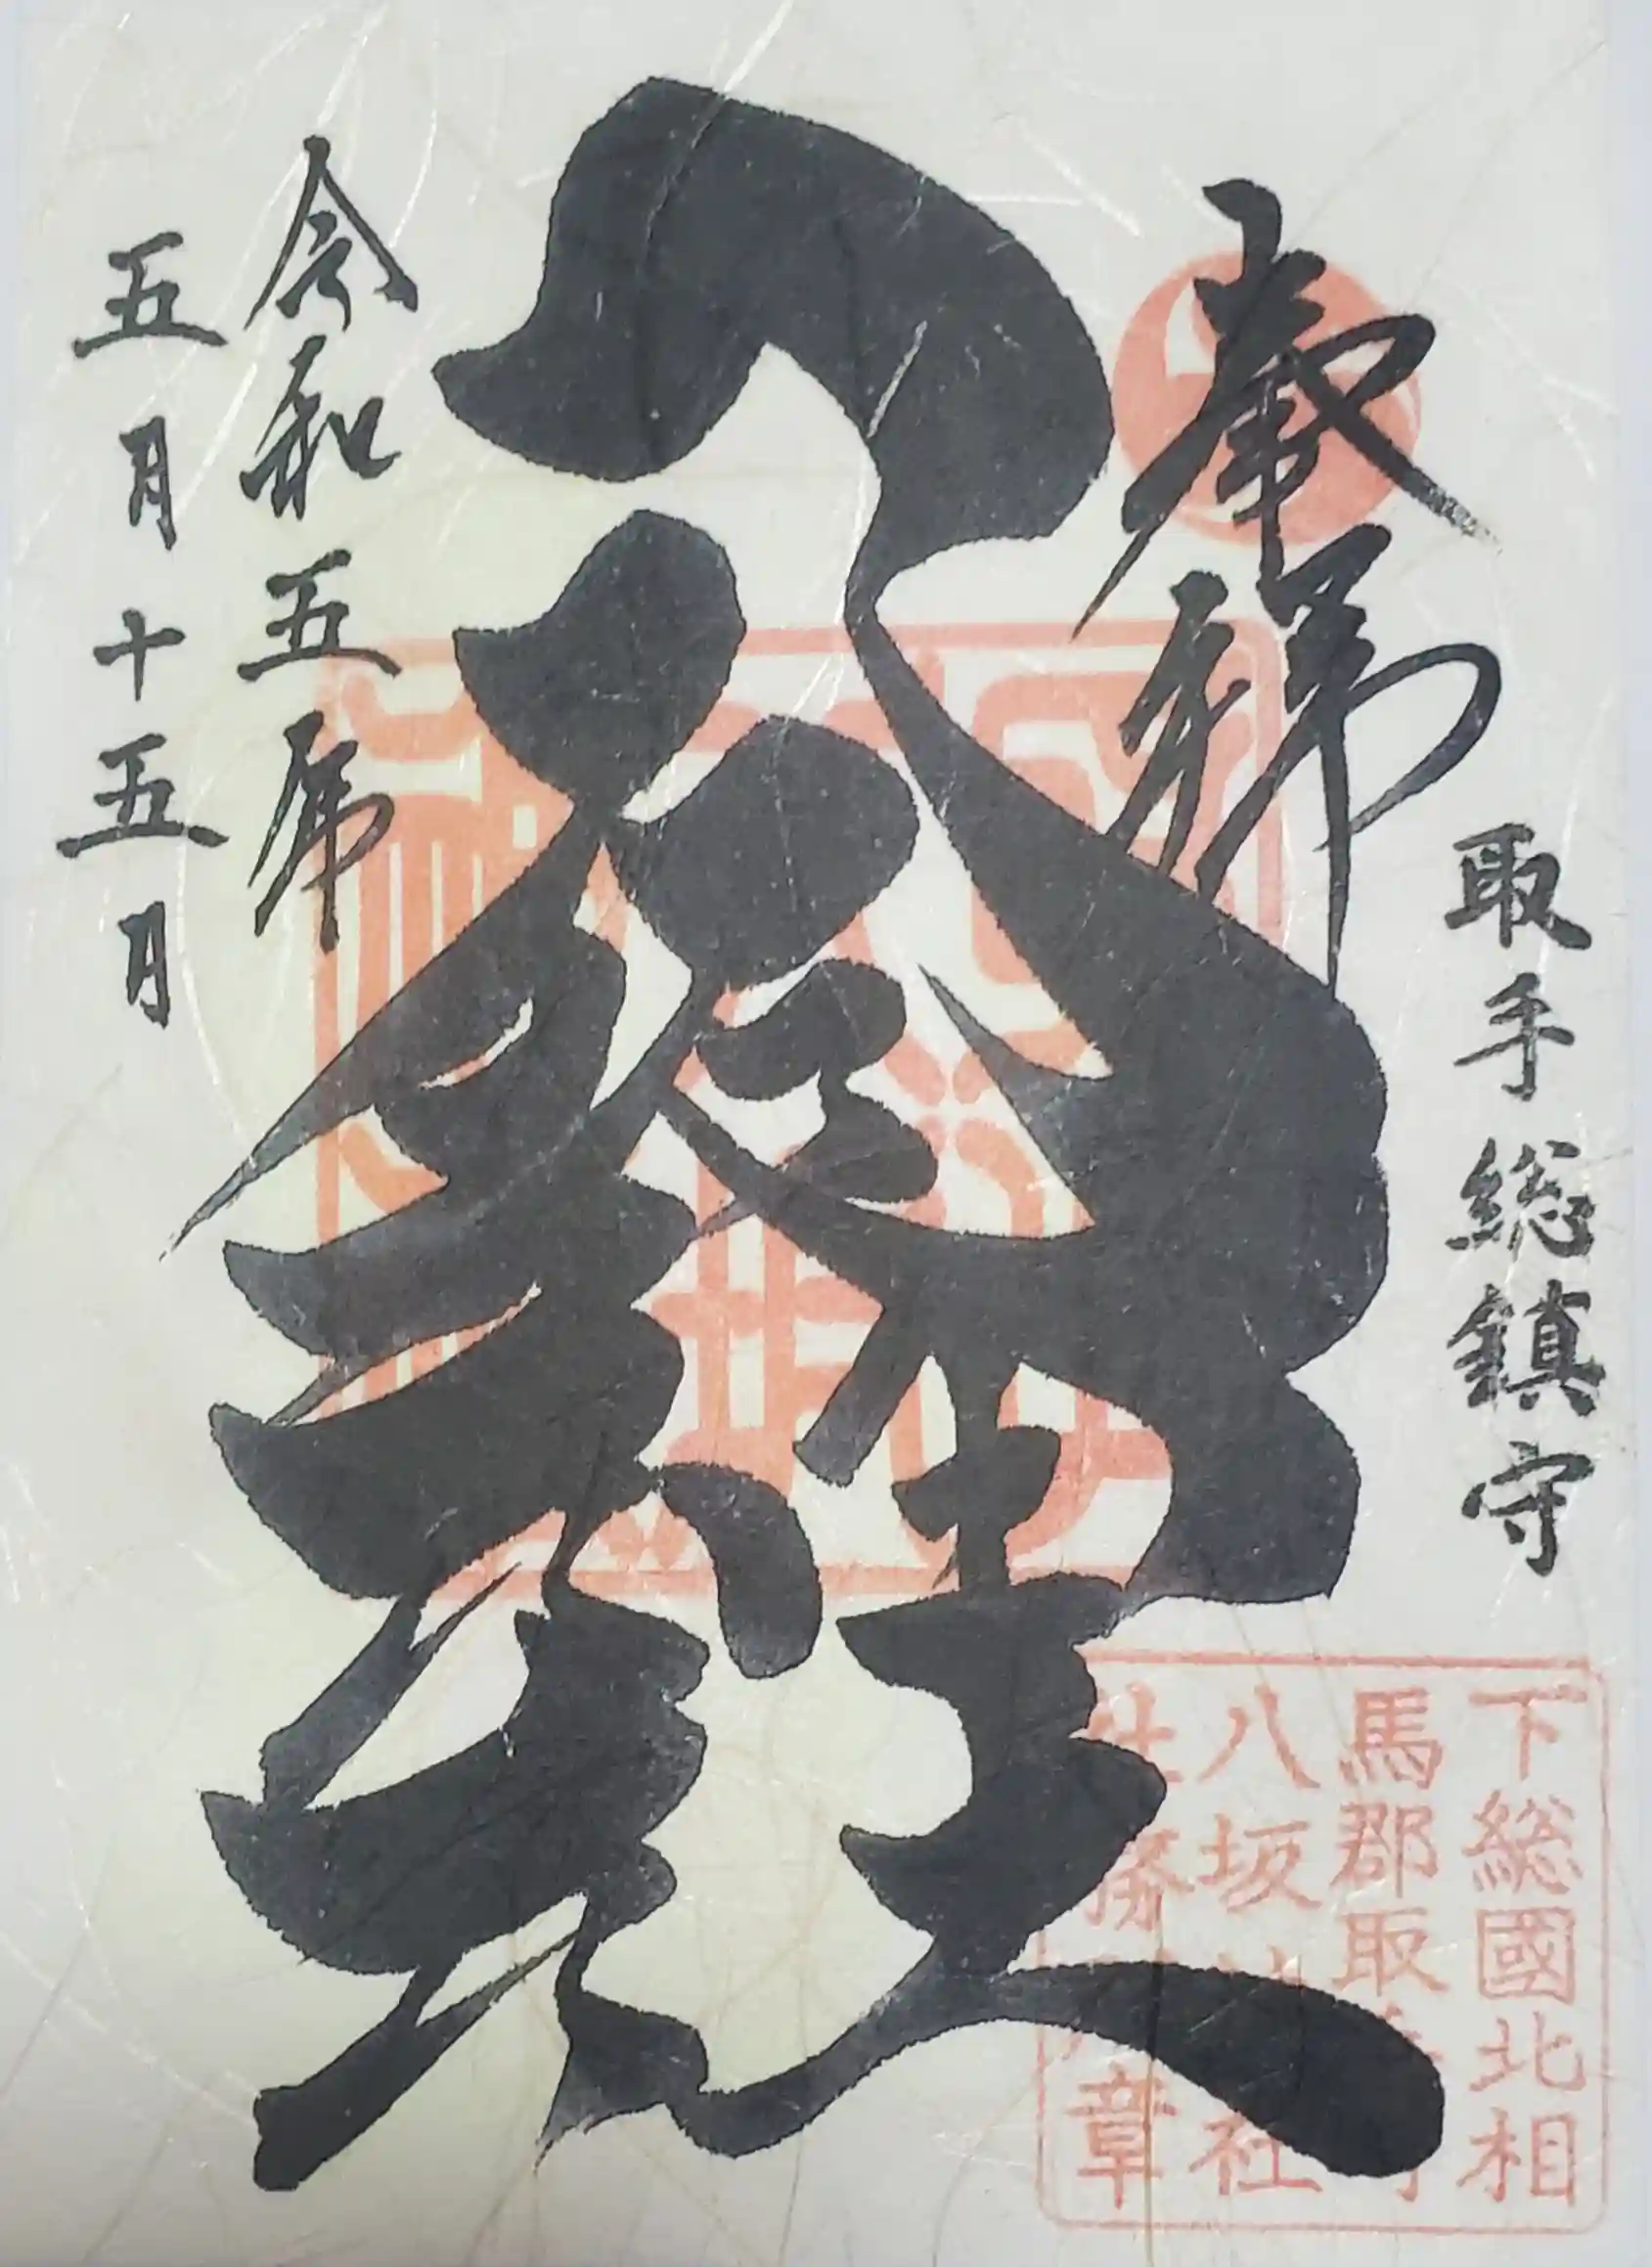 取手総鎮守
奉拝
八坂神社
令和五年
五月十五日
下総國北相
馬郡取手町
八坂神社
社務所章